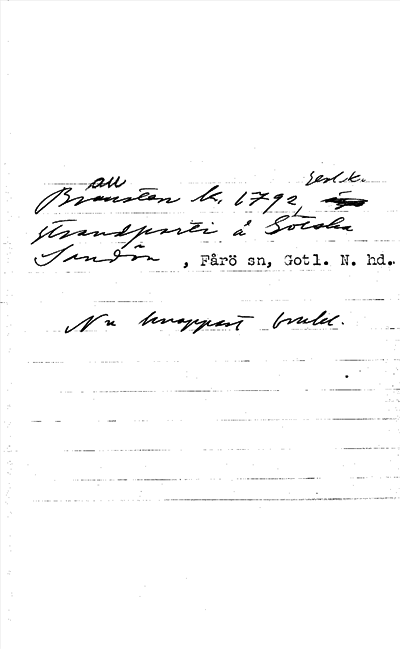 au
Brausten k. 1792,
strandparti å Gotska
Sandön , Fårö sn, Gotl. N. hd.
Nu knappast brukl.